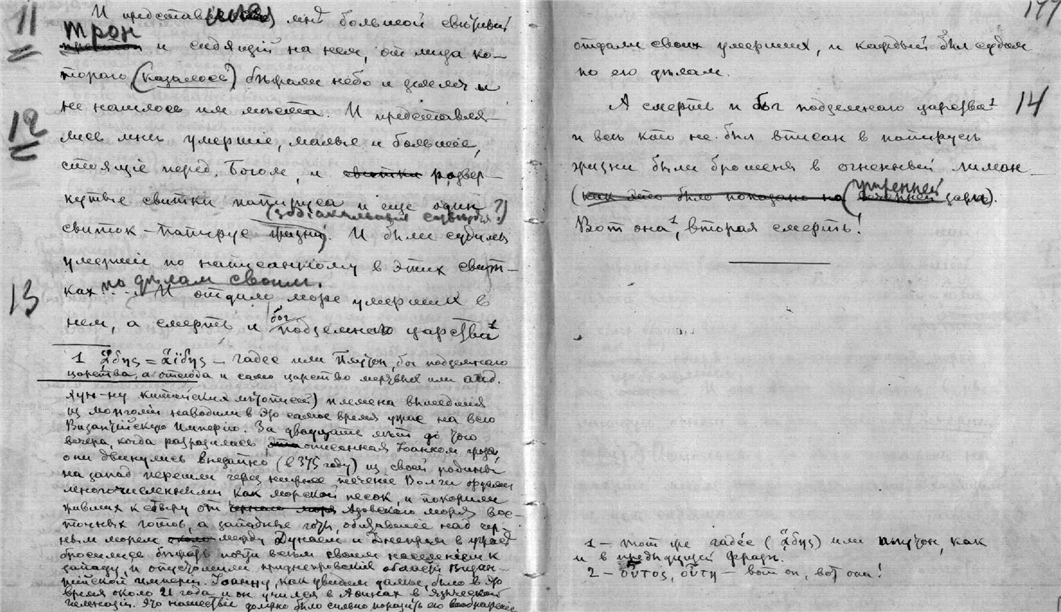 11
И представился мнѣ большой свѣтлый
трон и сидящій на нем, от лица ко-
тораго (казалось) бѣжали небо и земля и
не нашлось им мѣста. И представи-
12
лись мнѣ умершіе, малые и большіе,
стоящіе перед Богом, и развер-
нутые свитки папируса и еще один
(предсказывающій судьбы?)
свиток-папирус жизни. И были судимы
умершіе по написанному в этих свит-
13
ках по дѣлам своим. И отдало море умерших в
нем, а смерть и бог подземнаго царства¹
1 ᾅδης = ἀΐδης — гадес или Плутон, бог подземнаго
царства, а отсюда и само царство мертвых или ад.
хун-ну китайских лѣтописей) племена вышедшія
из Монголіи наводили в это самое время ужас на всю
Византійскую Имперію. За двадцать лѣт до того
вечера, когда разразилась описанная Іоанном гроза,
они двинулись внезапно (в 375 году) из своей родины
на запад перешли через нижнее теченіе Волги ордами
многочисленными как морской песок, и покорили
живших к сѣверу от Азовскаго моря вос-
точных готов, а западные готы, обитавшіе над чер-
ным морем между Дунаем и Днѣпром в ужасѣ
бросились бѣжать почти всѣм своим населеніем к
западу и опустошили придунайскія области Визан-
тійской имперіи. Іоанну, как увидим далѣе, было в это
время около 21 года и он учился в Афинах в языческой
гимназіи. Это нашествіе должно было сильно поразить его воображеніе
177
отдали своих умерших, и каждый был судим
по его дѣлам.
А смерть и бог подземнаго царства¹ 14
и весь кто не был вписан в папирусѣ
жизни были брошены в огненный лиман
(как это было показано на утренней зарѣ).
Вот она², вторая смерть!
1 — тот же гадес (ᾅδης) или Плутон, как
и в предыдущей фразѣ.
2 — οὗτος, αὕτη — вот он, вот она!